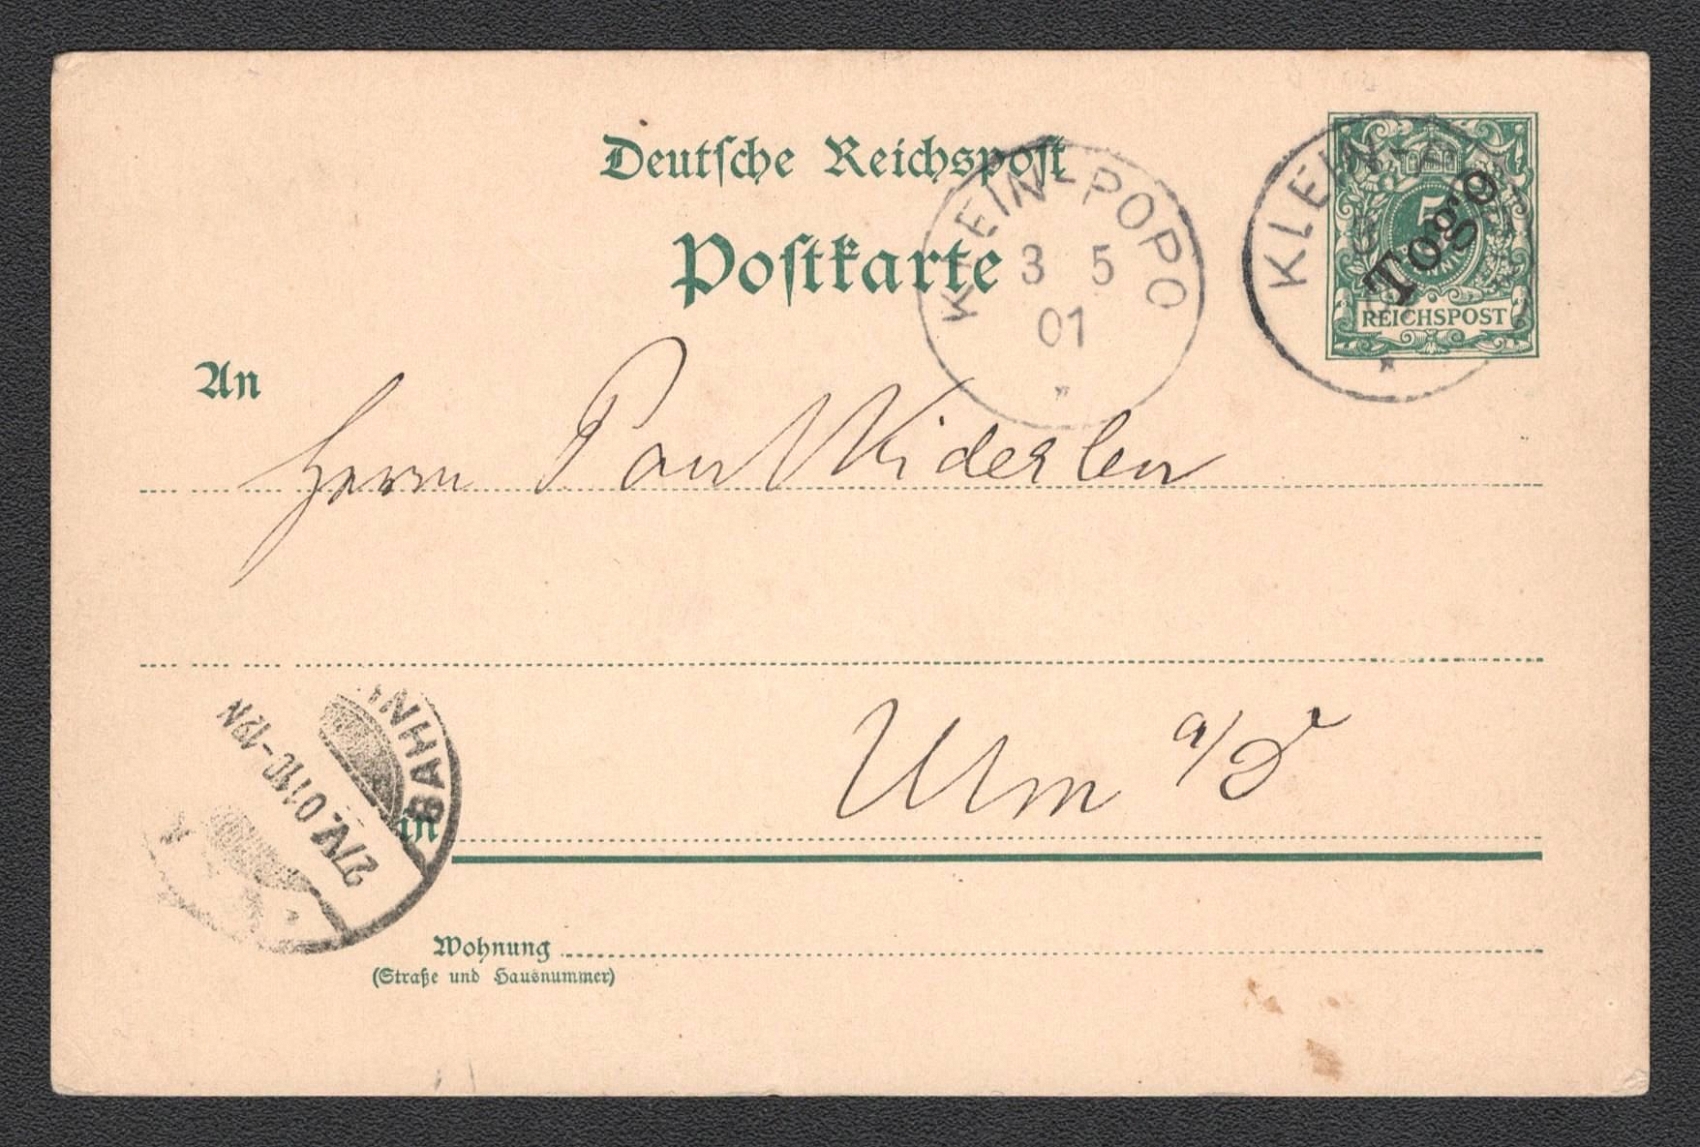 Deutsche Reichspost
KLEIN-POPO
3 5
01
KLEIN
5
Togo
REICHSPOST
Postkarte
An
Herrn Paul
Ulm a/D
in
BAHNH
27.V.01.10-12N
Wohnung
(Straße und Hausnummer)